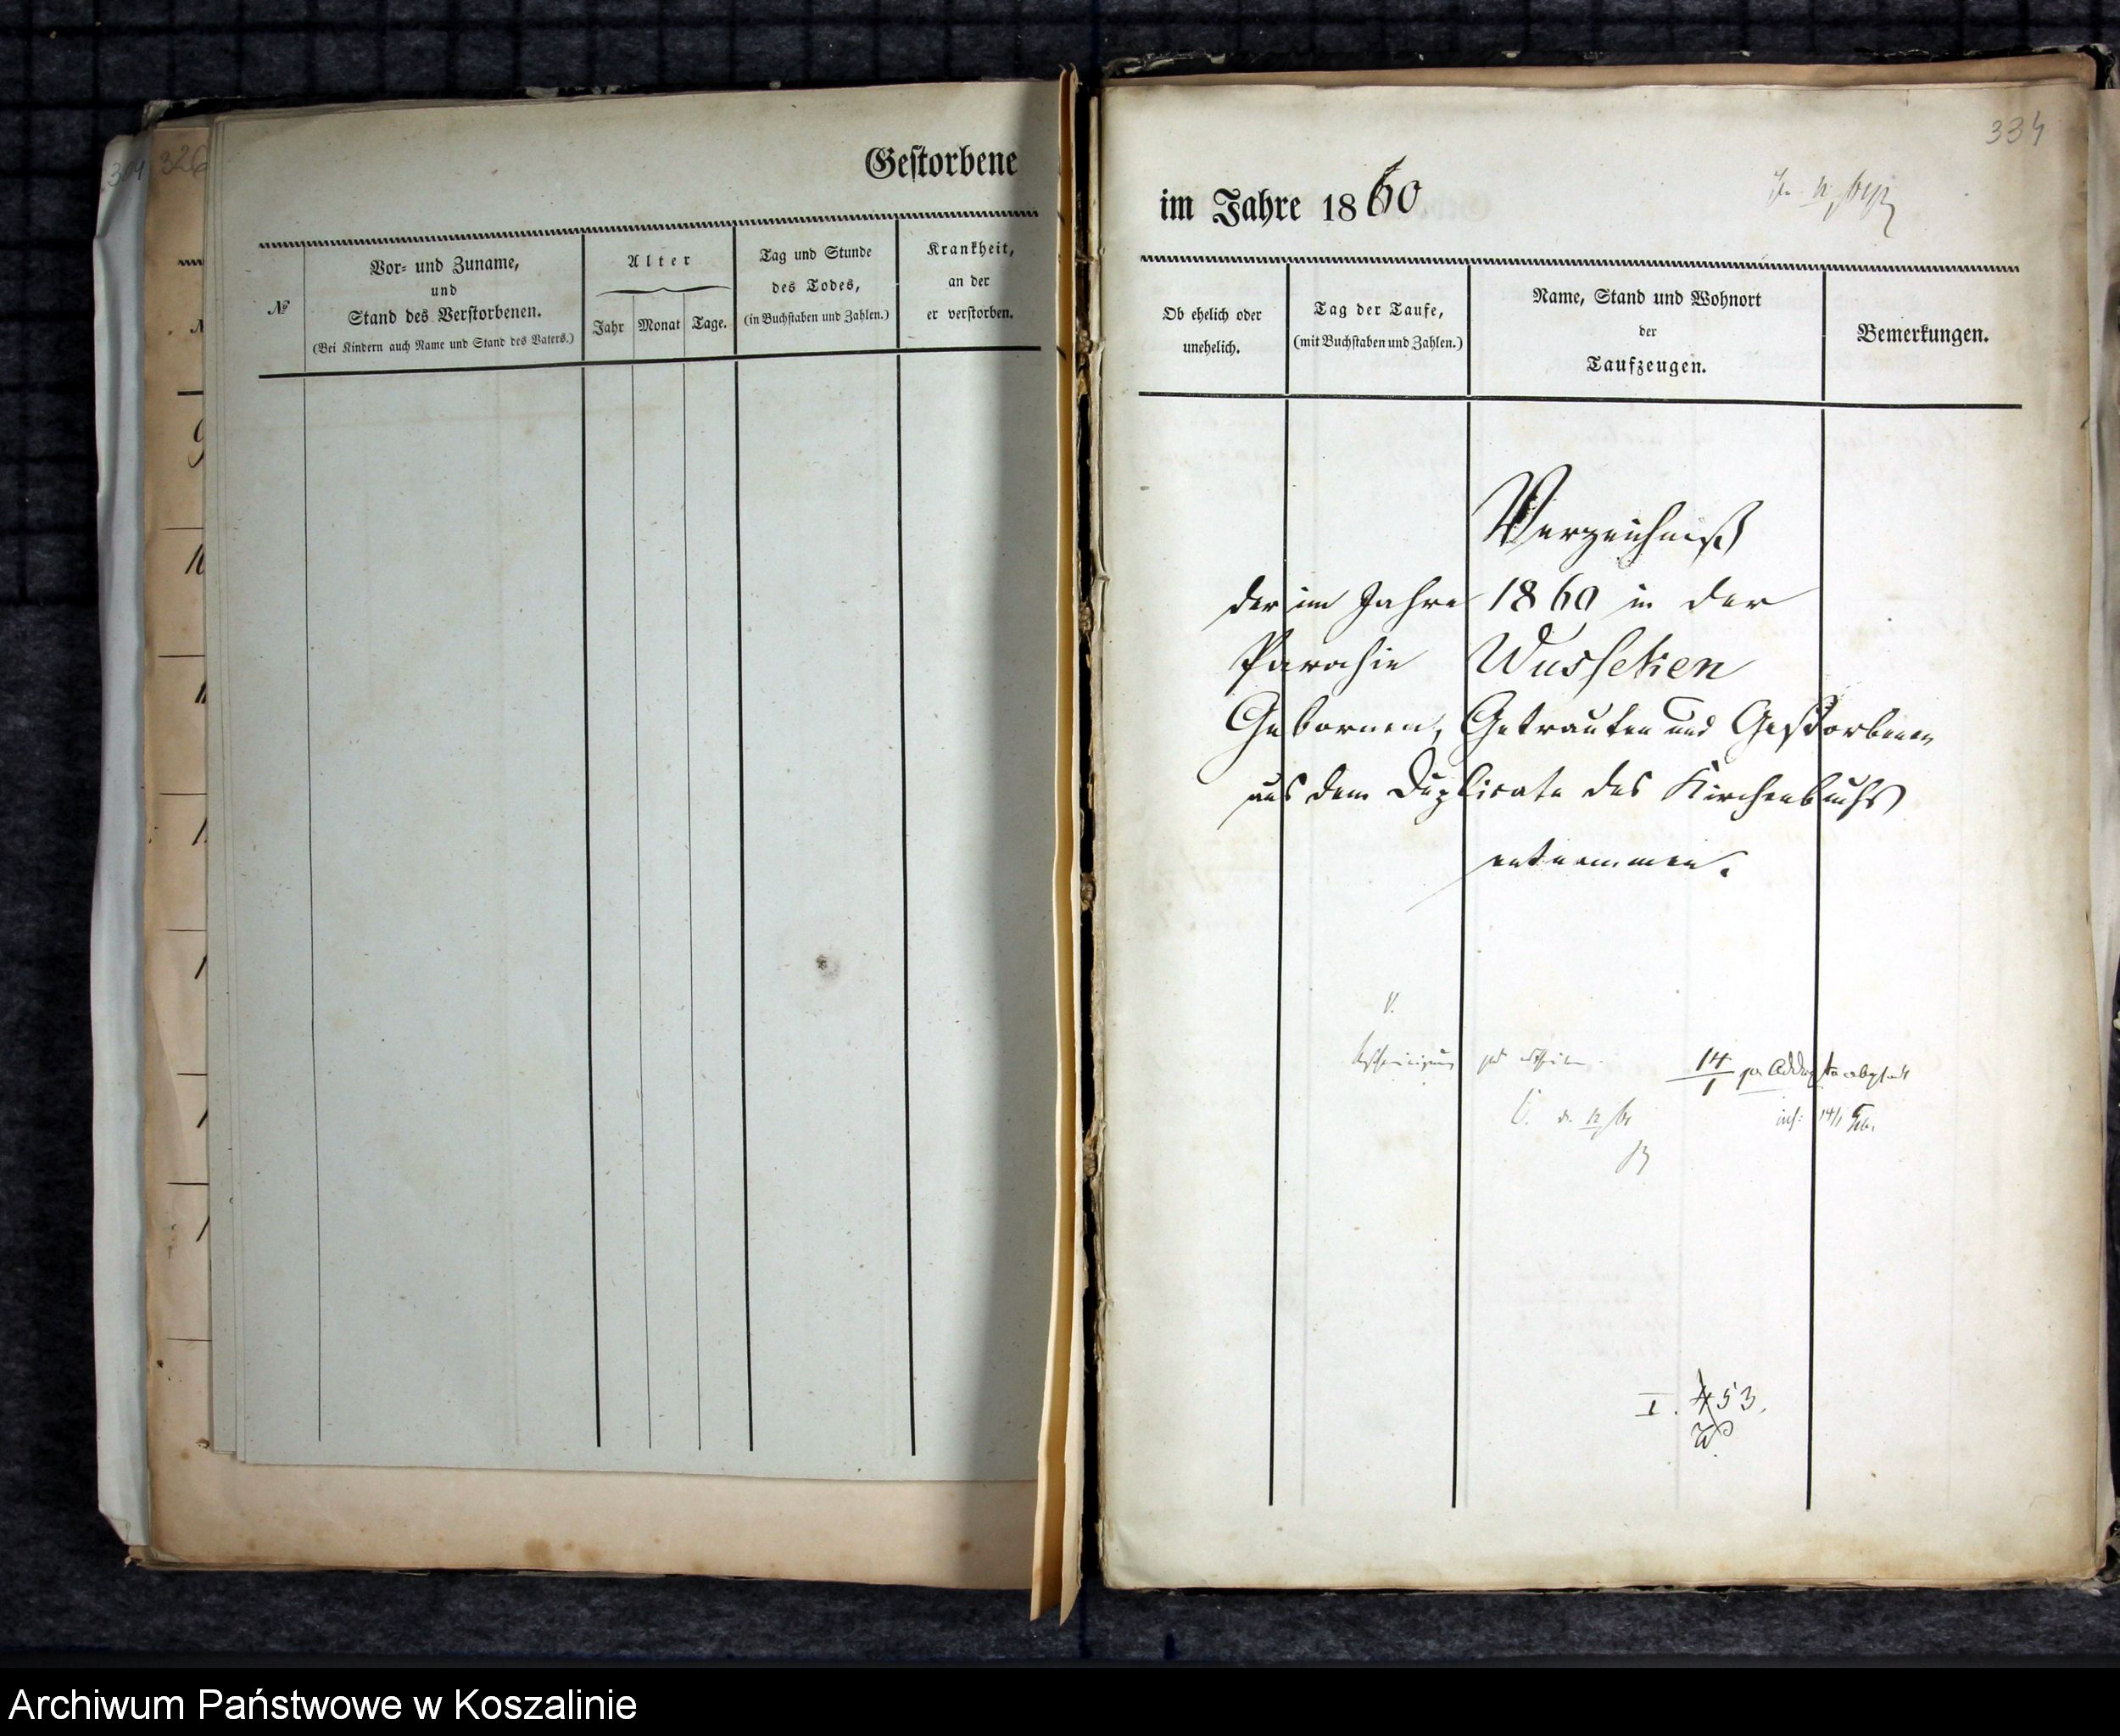 304
326
Gestorbene
№
Vor- und Zuname,
und
Stand des Verstorbenen.
(Bei Kindern auch Name und Stand des Vaters.)
Alter
Jahr
Monat
Tage.
Tag und Stunde
des Todes,
(in Buchstaben und Zahlen.)
Krankheit,
an der
er verstorben.
9
10
334
im Jahre 1860
Ob ehelich oder
unehelich.
Tag der Taufe,
(mit Buchstaben und Zahlen.)
Name, Stand und Wohnort
der
Taufzeugen.
Bemerkungen.
Verzeichniß
der im Jahre 1860 in der
Parochie Wusseken
Gebornen, Getrauten und Gestorbenen
aus dem Duplicate des Kirchenbuchs
entnommen.
V.
14/1
14/1
I. 453.
Archiwum Państwowe w Koszalinie